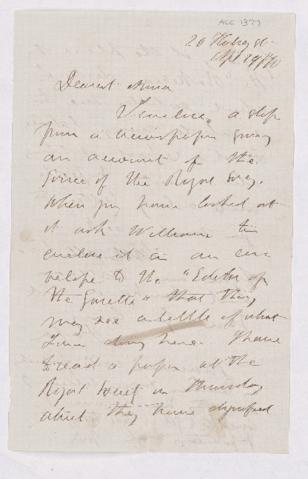 ACC 1377
20 Halsey St
Apl 29th/70
Dearest Anna
I enclose a slip
from a newspaper giving
an account of the
Soiree of the Royal Socy.
When you have looked at
it ask William to
enclose it in an en
velope to the "Editor of
the Gazette" that they
may see a little of what
I am doing here. I have
to read a paper at the
Royal Socy on Thursday
about they have